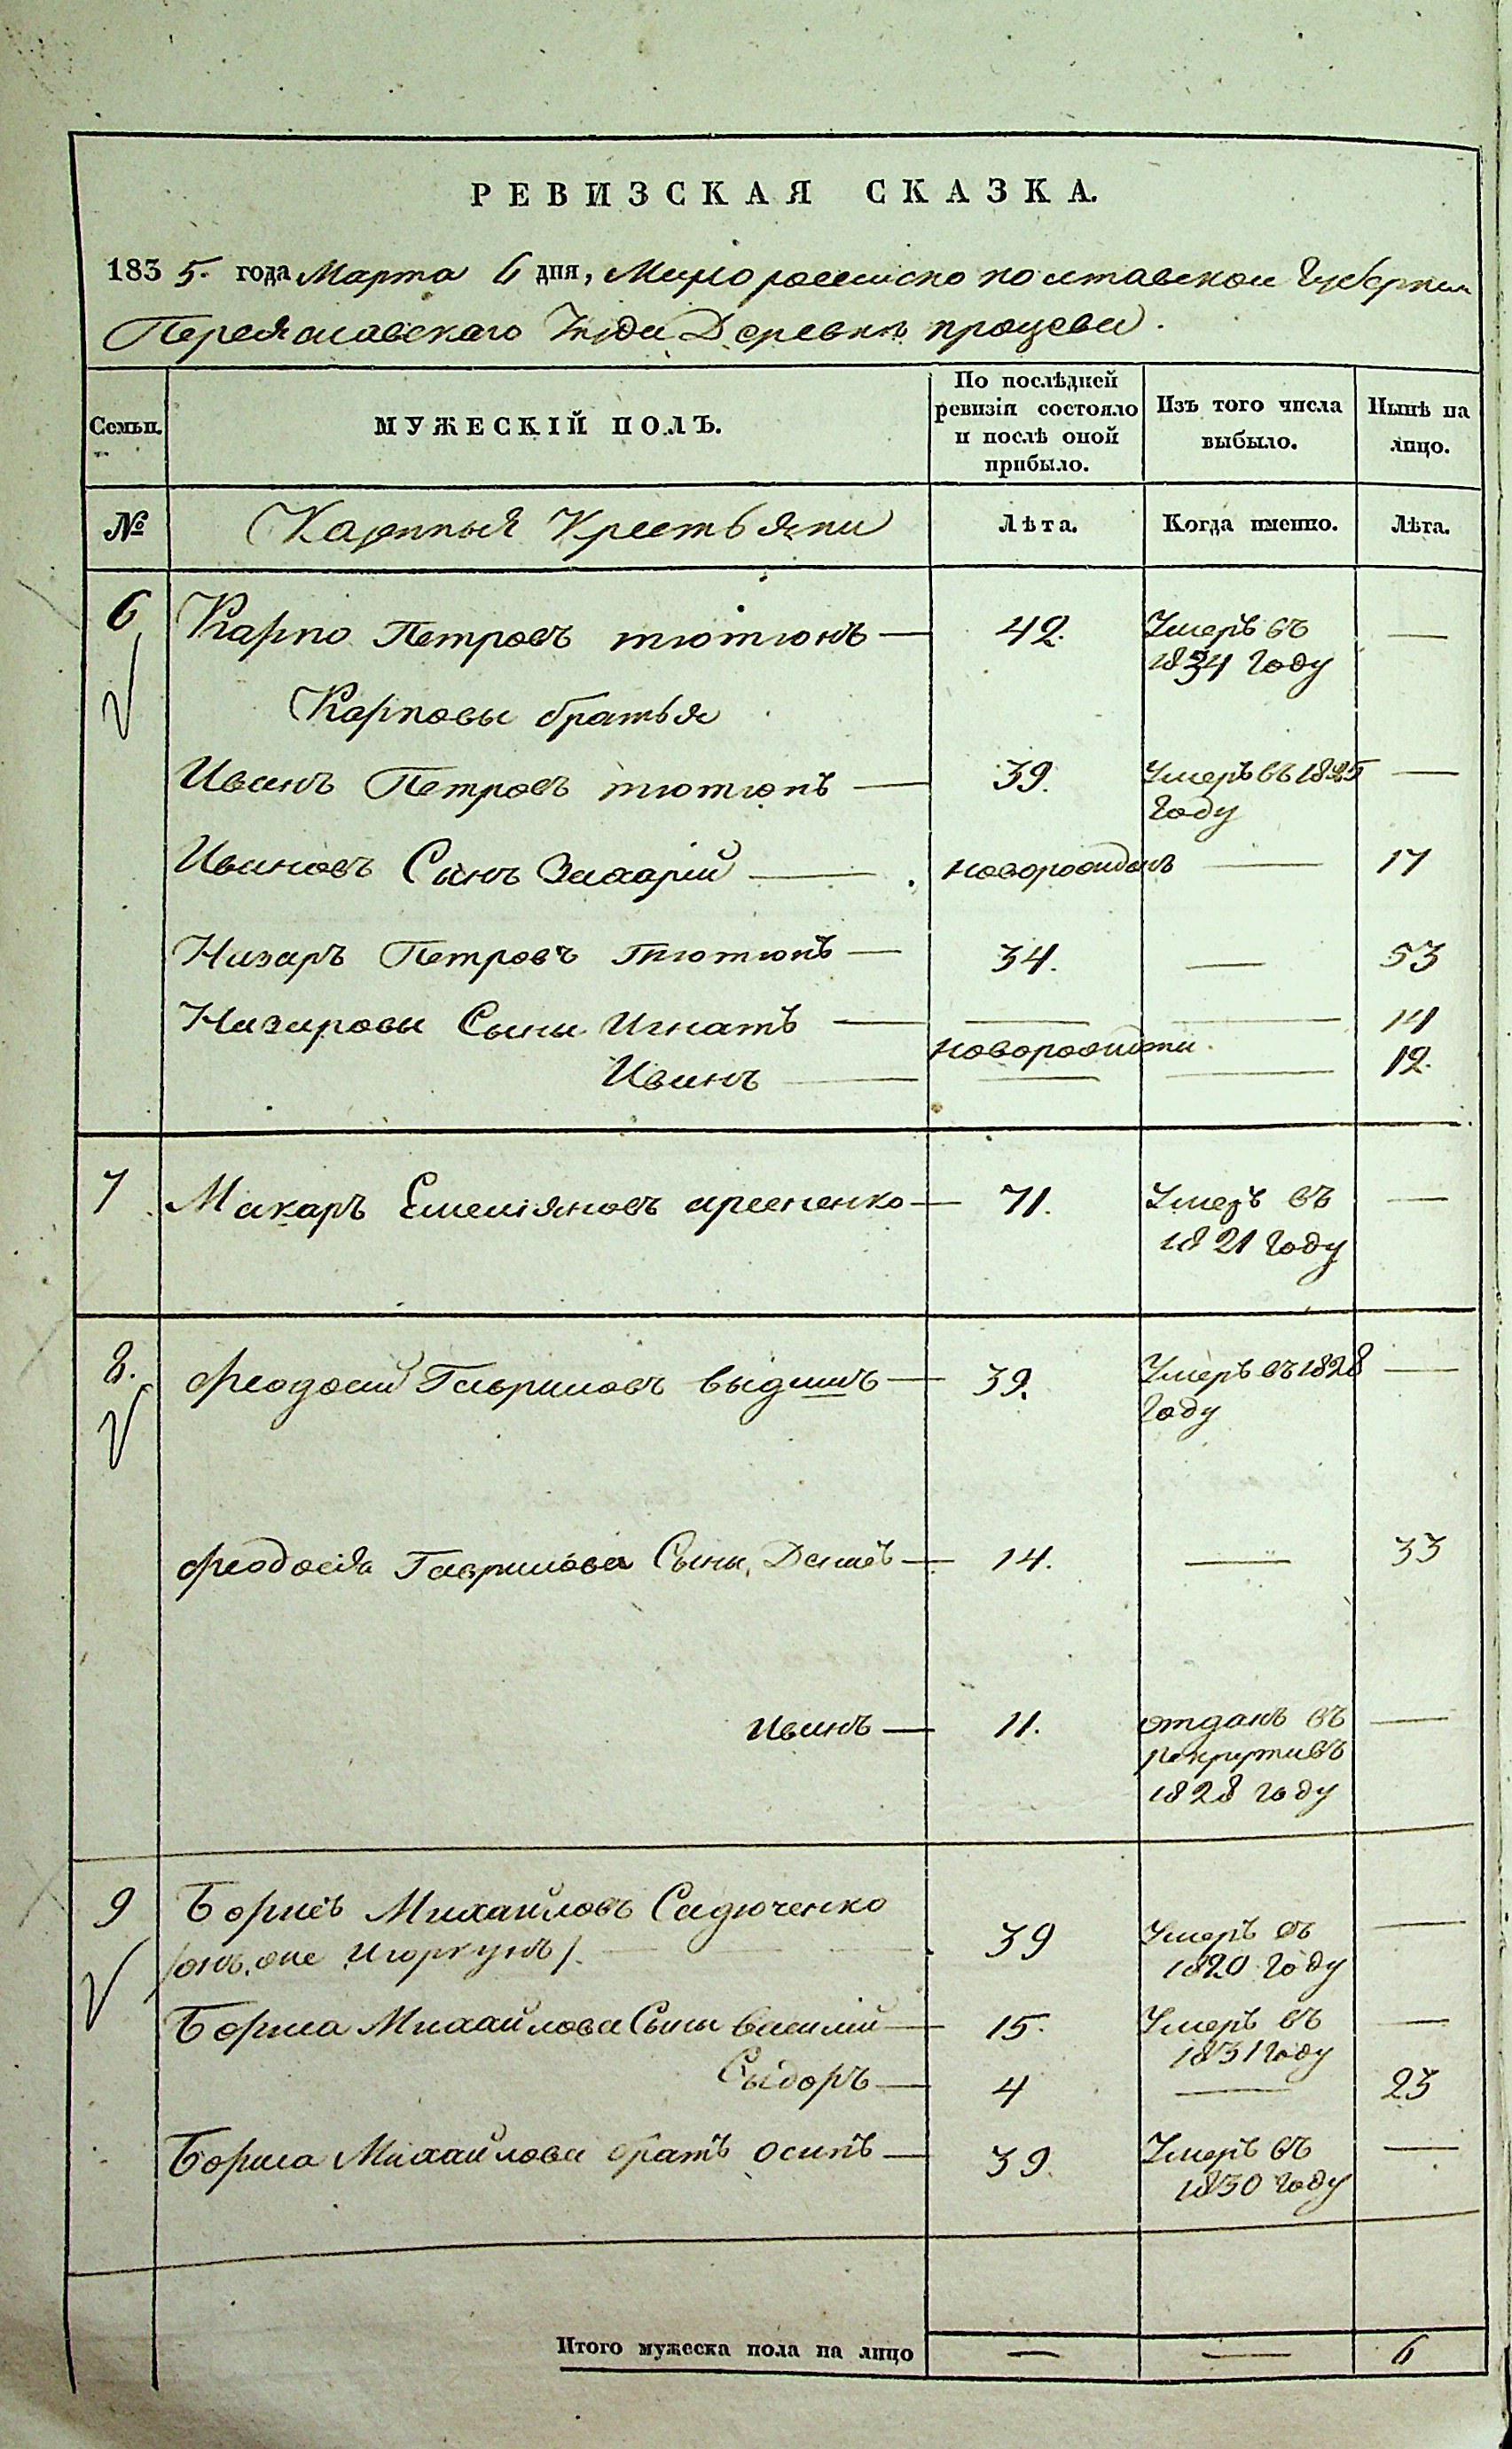 РЕВИЗСКАЯ СКАЗКА.
1835. года Марта 6 дня, Малоросийско полтавской Губернии
Переяславскаго Уезда Деревни процева.
Семьи. МУЖЕСКІЙ ПОЛЪ. По послѣдней ревизіи состояло и послѣ оной прибыло. Изъ того числа выбыло. Нынѣ на лицо.
№ Казенныя Крестьяни Лѣта. Когда именно. Лѣта.
6 Карпо Петровъ тютюнъ — 42. Умеръ въ 1834 Году —
Карповы братья
Иванъ Петровъ тютюнъ — 39. Умеръ въ 1825 Году —
Ивановъ Сынъ Захарій — новорожденъ — 17
Назаръ Петровъ Тютюнъ — 34. — 53
Назаровы Сыны Игнатъ — — — 14
новорождени.
Иванъ — — — 12.
7 Макаръ Емеліяновъ арсененко — 71. Умеръ въ 1821 Году —
8. Феодосий Гавриловъ — 39. Умеръ въ 1828 Году —
Феодосія Гаврилова Сыны, Денисъ — 14. — 33
Иванъ — 11. отданъ въ рекрутивъ 1828 году —
9 Борисъ Михайловъ Садюченко
/онъ, же / — 39 Умеръ въ 1820 Году —
Бориса Михайлова Сыны Василій — 15. Умеръ въ 1831 Году —
Сыдоръ — 4 — 23
Бориса Михайлова братъ осипъ — 39. Умеръ въ 1830 Году —
Итого мужеска пола на лицо — — 6